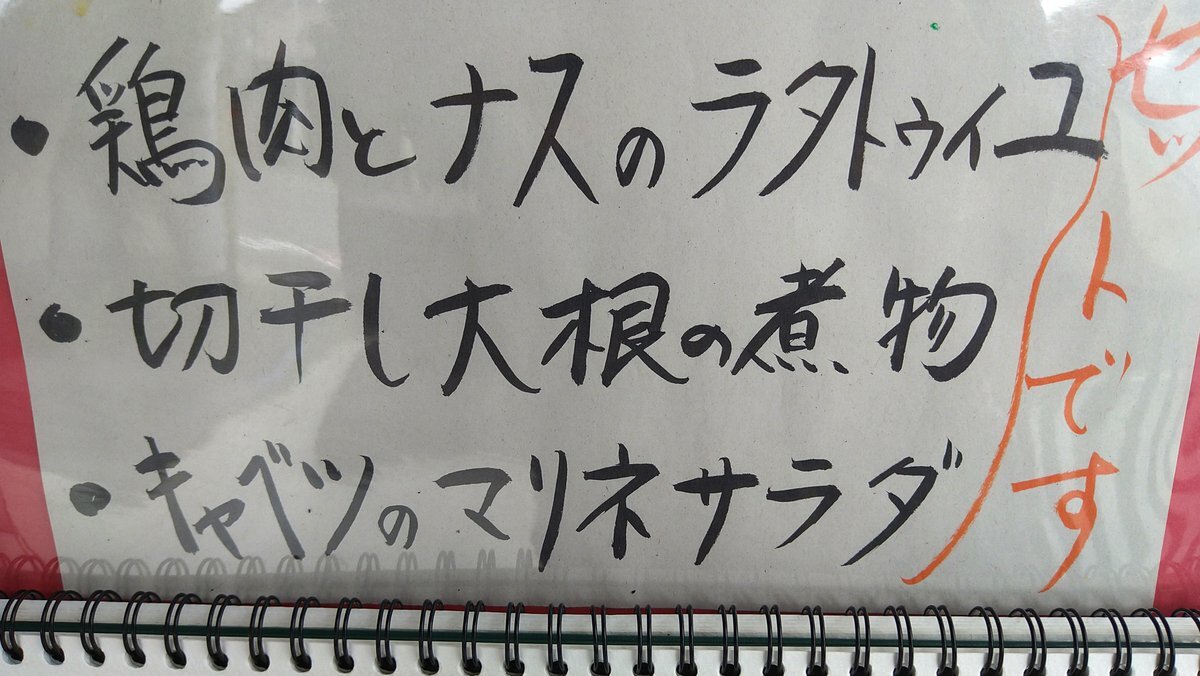 ・鶏肉とナスのラタトゥイユ
・切干し大根の煮物
・キャベツのマリネサラダ
セットです